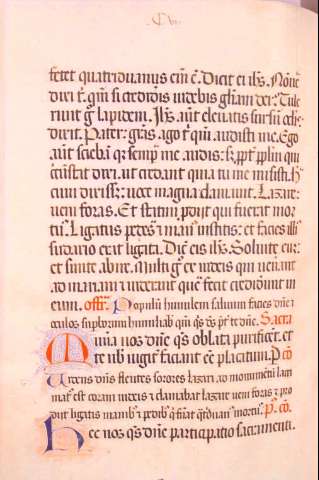 fetet quatriduanus eim ē. Dicit ei ihs. Nōne
dixi t. qm si credideris videbis gliam dei. Tule
runt g lapidem. Ihs. aut elevatis sursum ocłis
dixit. Pater. gras ago t qm audisti me. Ego
aut sciebā qz semp me audis. sz ppt pplm qui
cīcūstat dixi. ut credant quia tu me misisti. H
cum dixisset. voce magna clamavit. Lazare.
veni foras. Et statim pdijt qui fuerat mor
tu. Ligatus pedes et man institis. et facies illi
sudario erat ligata. Dic eis ihs. Solvite eū.
et sinite abire. Multi g ex iudeis qui venant
ad mariam et viderant que fecit crediderunt in
eum. offr. Populū humilem salvum facies dne et
oculos suploru humiliab qm qs ds pt te dne. Secta
Munia nos dne qs oblata purificet. et
te nb iugit faciant eē placatum. P cō
Videns dns flentes sorores lazari. ad monumētū lacri
mat est coram iudeis et clamabat lazare veni foras et pro
dijt ligatis manib et pedib q fuat qtduan mortu. P. cō.
Hec nos qs dne participatio sacramenti.